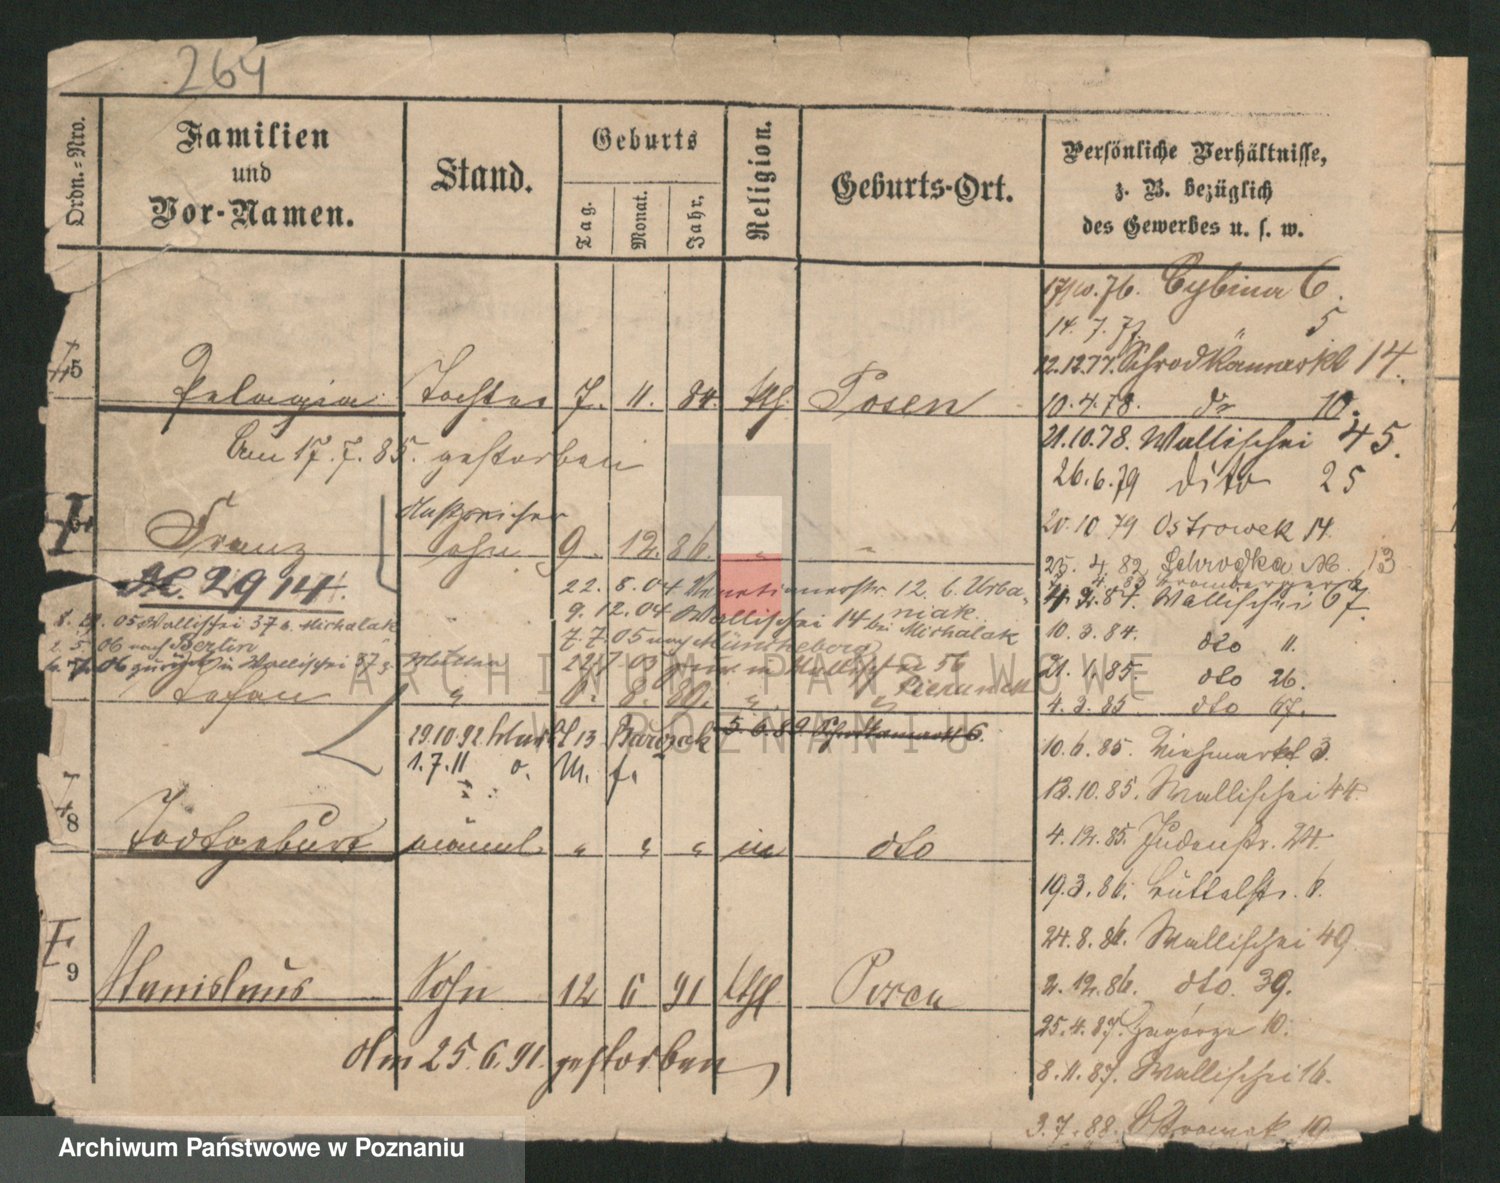 264
Ordn.-Nro.
Familien
und
Vor-Namen.
Stand.
Geburts
Tag.
Monat.
Jahr,
Religion.
Geburts-Ort.
Persönliche Verhältnisse,
z. B. bezüglich
des Gewerbes u. s. w.
17/10.76. Cybina 6.
14. 7. 77. 5
12.12.77. Schrodkamarkt 14.
5 Pelagia Tochter 7. 11. 84. kth. Posen
10.4.78. do 10.
Am 17.7.85. gestorben
21.10.78. Wallischei 45.
26.6.79 dito 25
20.10 79 Ostrowek 14.
Franz Sohn 9. 12. 86. " "
25. 4. 82. Schrodka M. 13
No. 2914.
22. 8. 04 Venetianerstr. 12. b. Urbaniak.
4. 2. 84. Wallischei 67.
9. 12. 04 Wallischei 14 bei Michalak
05 Wallischei 37 b. Michalak
10. 3. 84. dto 11.
7. 7. 05 nach Müncheberg
2. 5. 06 nach Berlin
7. 06 zurück in Wallischei 37
Wallischei 56
21. 1. 85. dto 26.
ARCHIWUM PAŃSTWOWE
Stefan " 8. 89. " "
4. 3. 85 dto 67.
W POZNANIU
29.10.92 13 Barczak 5.6.89 Schrodkamarkt 6.
10.6.85. Viehmarkt 3.
1.7.11 o. M. f.
13.10.85. Wallischei 44.
8 Todtgeburt männl. " " " " dto
4.12.85. Judenstr. 24.
19.3.86. Büttelstr. 6.
24.8.86. Wallischei 49.
9 Stanislaus Sohn 12 6 91 kth Posen
2.12.86. dto. 39.
25.4.87. Zagorze 10.
Am 25.6.91. gestorben
8.11.87. Wallischei 16.
3.7.88. Ostrowek 10.
Archiwum Państwowe w Poznaniu